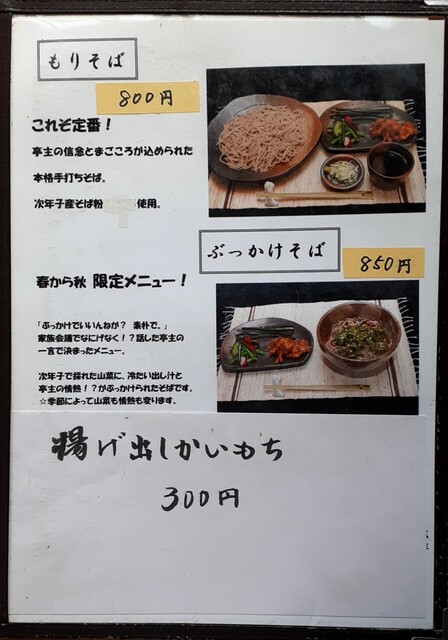 もりそば
800円
これぞ定番！
亭主の信念とまごころが込められた
本格手打ちそば。
次年子産そば粉 使用。
ぶっかけそば
850円
春から秋 限定メニュー！
「ぶっかけでいいんねが？ 素朴で。」
家族会議でなにげなく！？話した亭主の
一言で決まったメニュー。
次年子で採れた山菜に、冷たい出し汁と
亭主の情熱！？がぶっかけられたそばです。
☆季節によって山菜も情熱も変ります。
揚げ出しかいもち
300円